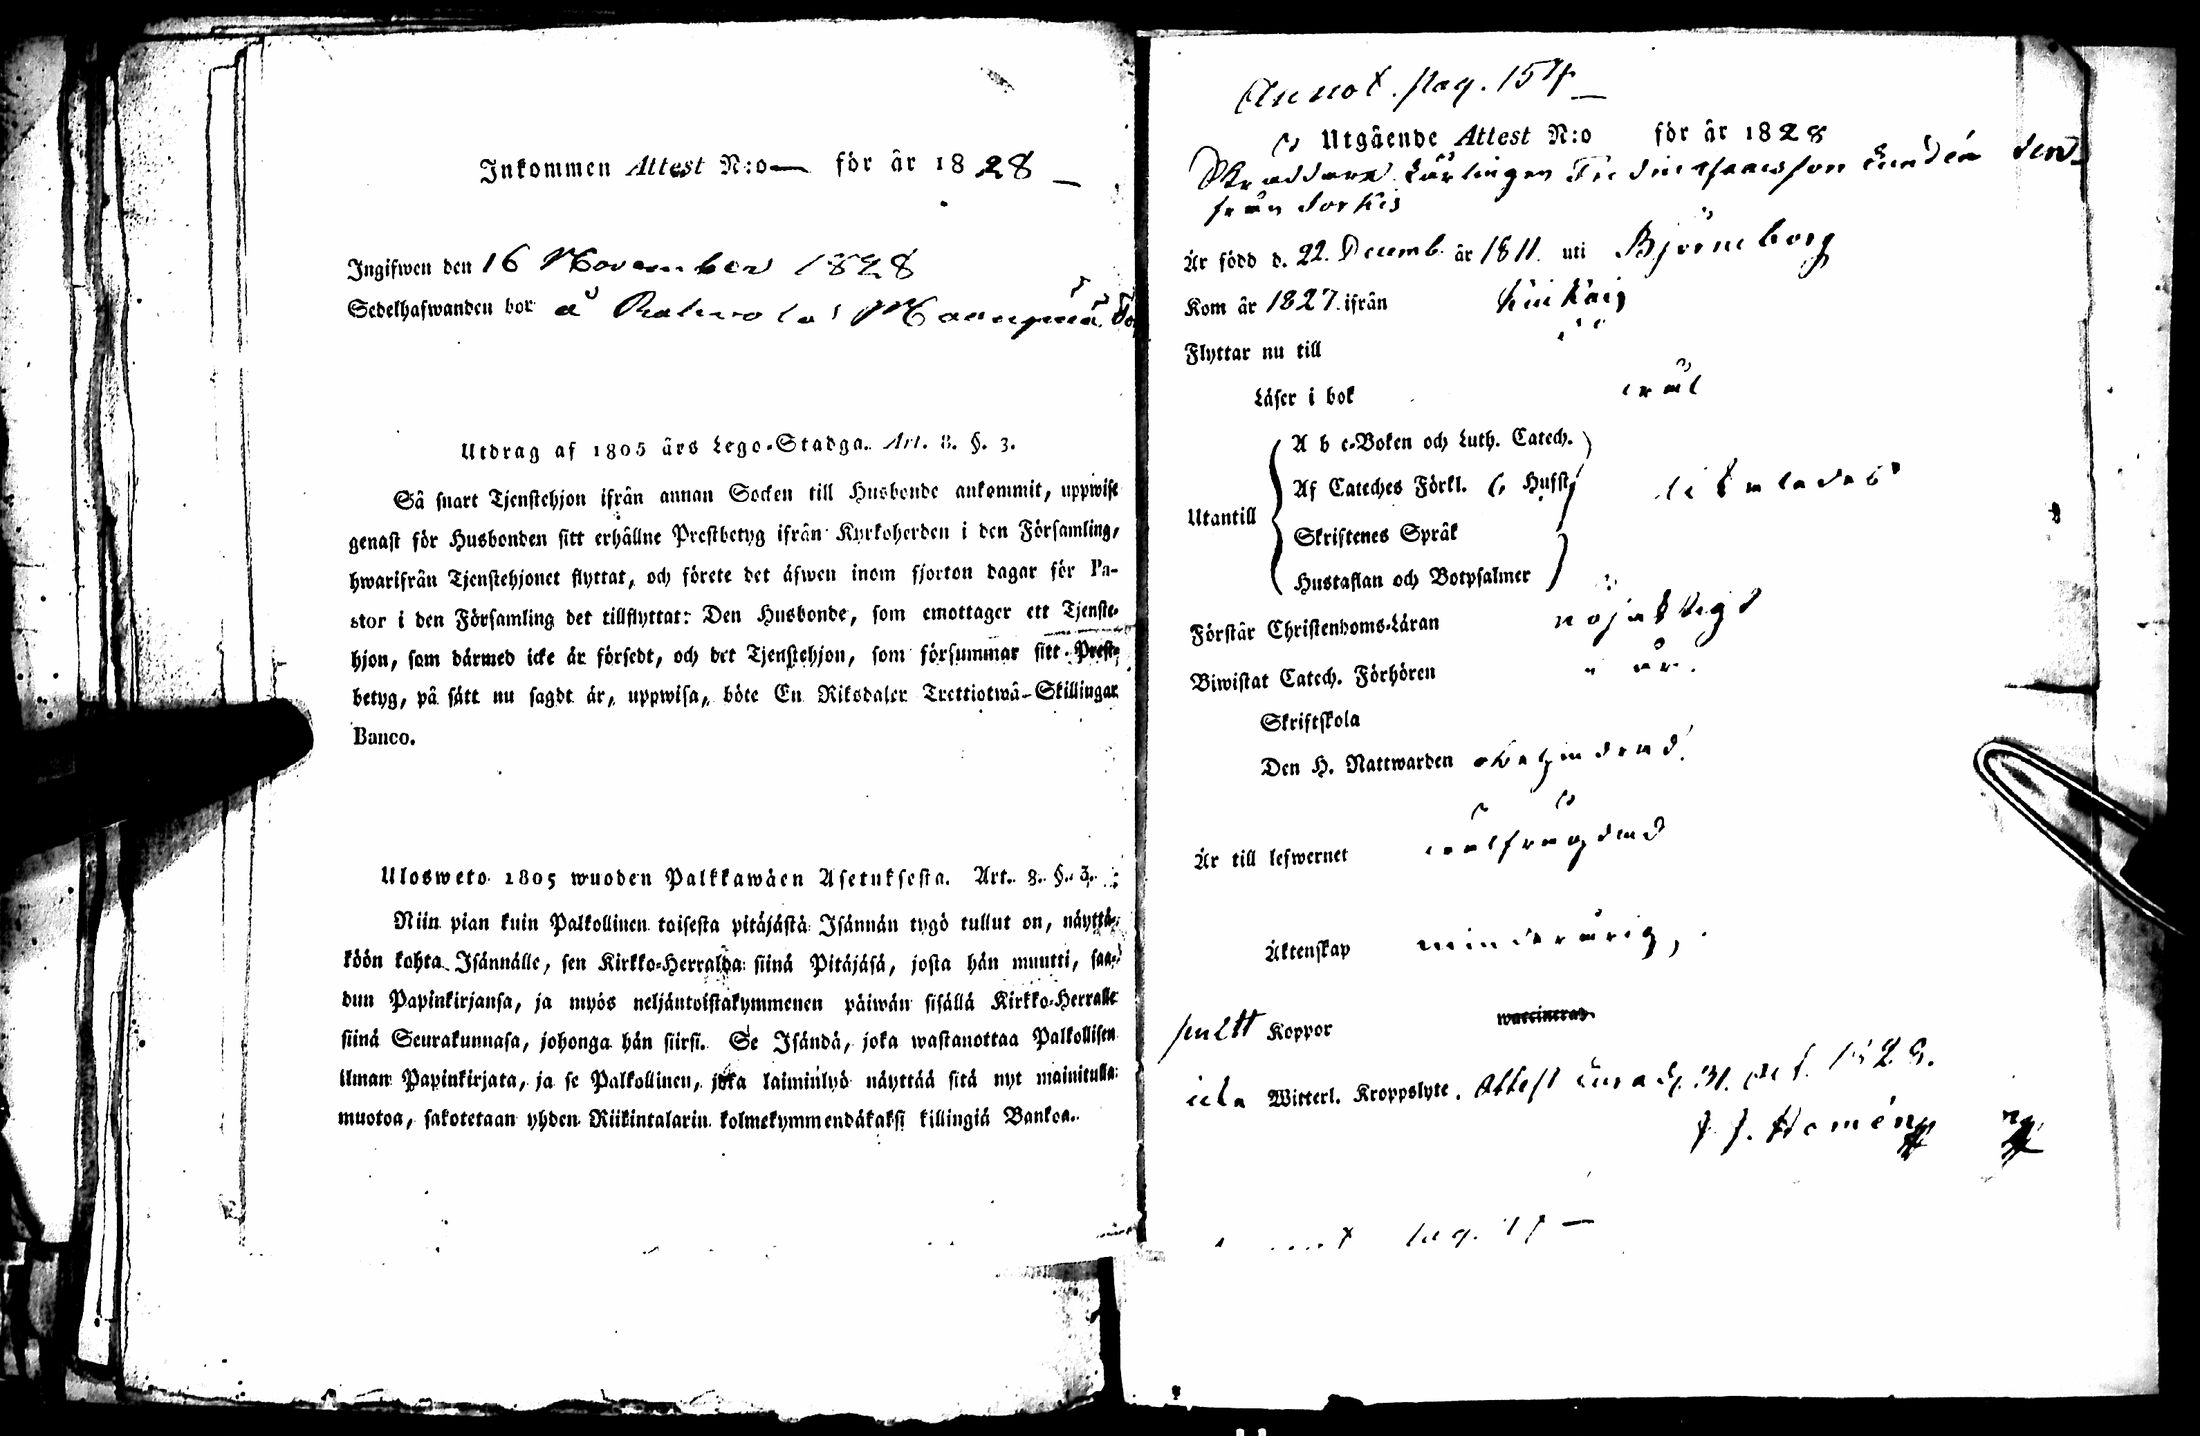 Inkommen Attest N:o — för år 1828 —
Ingifwen den 16 November 1828
Sedelhafwanden bor å
Utdrag af 1805 års Lego-Stadga. Art. 8. §. 3.
Så snart Tjenstehjon ifrån annan Socken till Husbonde ankommit, uppwise
genast för Husbonden sitt erhållne Prestbetyg ifrån Kyrkoherden i den Församling,
hwarifrån Tjenstehjonet flyttat, och förete det äfwen inom fjorton dagar för Pa-
stor i den Församling det tillflyttat: Den Husbonde, som emottager ett Tjenste-
hjon, som därmed icke är försedt, och det Tjenstehjon, som försummar sitt Prest-
betyg, på sätt nu sagdt är, uppwisa, böte En Riksdaler Trettiotwå Skillingar
Banco.
Ulosweto 1805 wuoden Palkkawäen Asetuksesta. Art. 8. §. 3.
Niin pian kuin Palkollinen toisesta pitäjästä Isännän tygö tullut on, näyttä-
köön kohta Isännälle, sen Kirkko-Herralda siinä Pitäjäsä, josta hän muutti, saa-
dun Papinkirjansa, ja myös neljäntoistakymmenen päiwän sisällä Kirkko-Herralle
siinä Seurakunnasa, johonga hän siirsi. Se Isändä, joka wastanottaa Palkollisen
ilman Papinkirjata, ja se Palkollinen, joka laiminlyö näyttää sitä nyt mainitulla
muotoa, sakotetaan yhden Riikintalarin kolmekymmendäkaksi killingiä Bankoa.
Annot. pag. 154 —
Utgående Attest N:o för år 1828
Skräddare Lärlingen
från
Är född d. 22. Decemb. år 1811. uti Björneborg
Kom år 1827. ifrån
Flyttar nu till
Läser i bok wäl
A b c-Boken och Luth. Catech.
Af Cateches Förkl. Husst.
Utantill
likaledes
Skriftenes Språk
Hustaflan och Botpsalmer
Förstår Christendoms-Läran nöjaktigt
Biwistat Catech. Förhören i år.
Skriftskola
Den H. Nattwarden obehindrad.
Är till lefwernet wälfrägdad
Äktenskap minderårig,
haft Koppor waccinerad.
icke Witterl. Kroppslyte. Attest. 31. Oct. 1828.
pag.